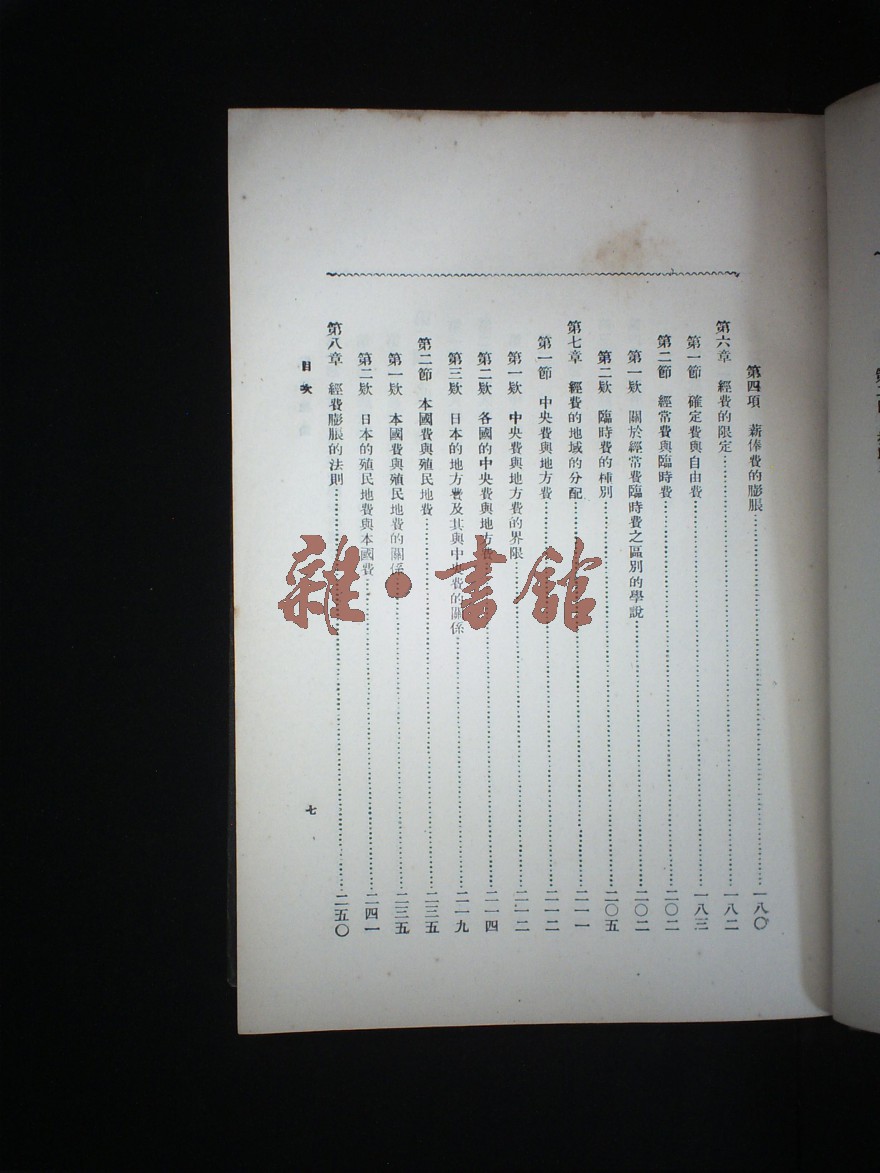 第四項 薪俸費的膨脹……一八〇
第六章 經費的限定……一八二
第一節 確定費與自由費……一八三
第二節 經常費與臨時費……二〇二
第一欵 關於經常費臨時費之區別的學說……二〇二
第二欵 臨時費的種別……二〇五
第七章 經費的地域的分配……二一一
第一節 中央費與地方費……二一二
第一欵 中央費與地方費的界限……二一二
第二欵 各國的中央費與地方費……二一四
第三欵 日本的地方費及其與中央費的關係……二一九
第二節 本國費與殖民地費……二三五
第一欵 本國費與殖民地費的關係……二三五
第二欵 日本的殖民地費與本國費……二四一
第八章 經費膨脹的法則……二五〇
目次
七
雜·書館